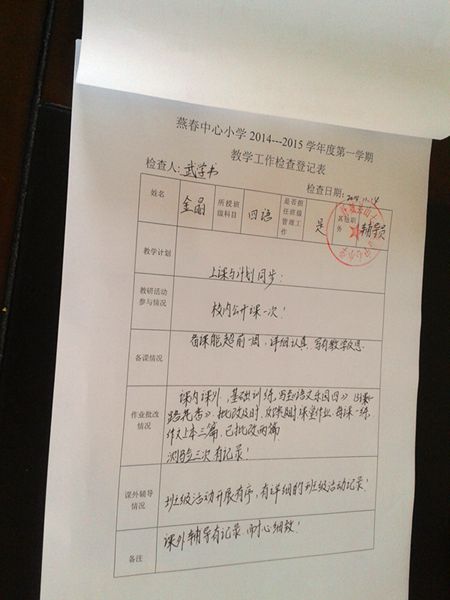 燕春中心小学2014---2015学年度第一学期
教学工作检查登记表
检查人：武学书 检查日期：2014.11.14
姓名 金晶 所授班级科目 四语 是否担任班级管理工作 是 其他职务 辅导员
教学计划 上课与计划同步；
教研活动参与情况 校内公开课一次！
备课情况 备课能超前一周，详细认真，写有教学反思.
作业批改情况 课内课外，基础训练，
批改及时，课堂作业 每课一练，
作文上本三篇，已批改两篇
测验三次有记录！
课外辅导情况 班级活动开展有序，有详细的班级活动记录！
备注 课外辅导有记录，耐心细致！